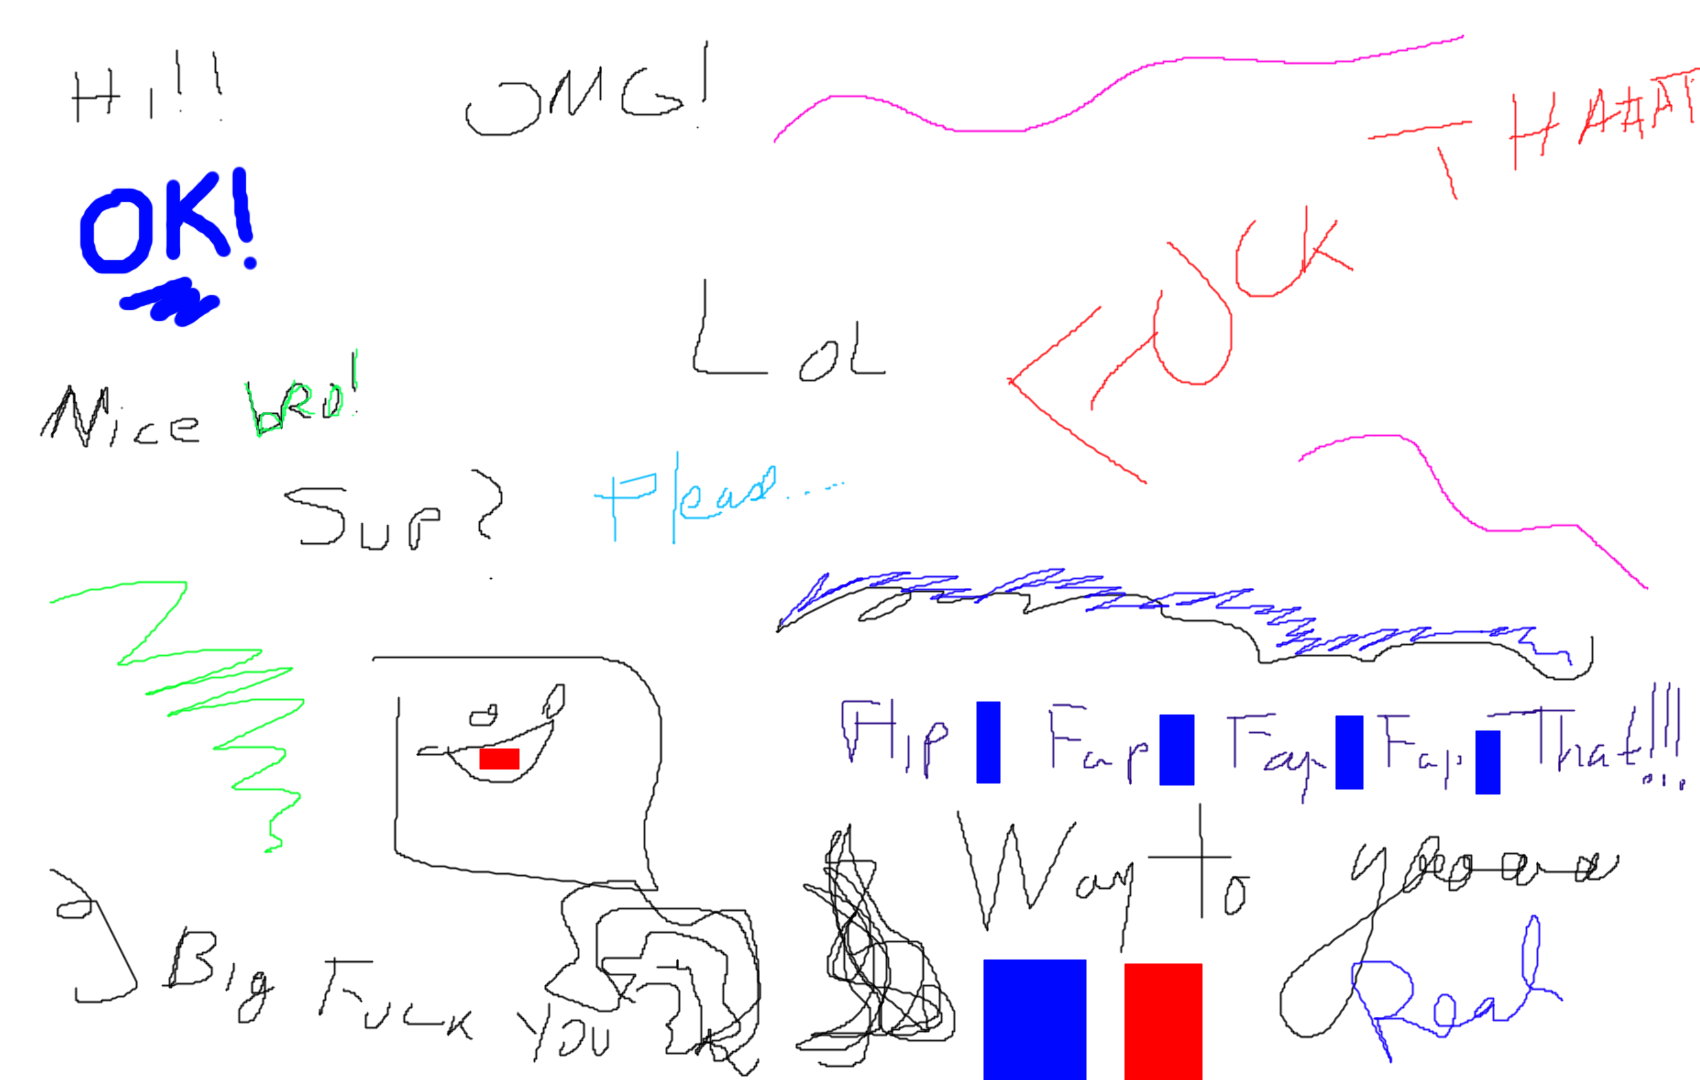 Hi!!
OMG!
THAAAT
OK!
FUCK
LOL
Nice bro!
Sup?
Please....
Flip Fap Fap Fap That!!!...
Way to
Big Fuck you
Real